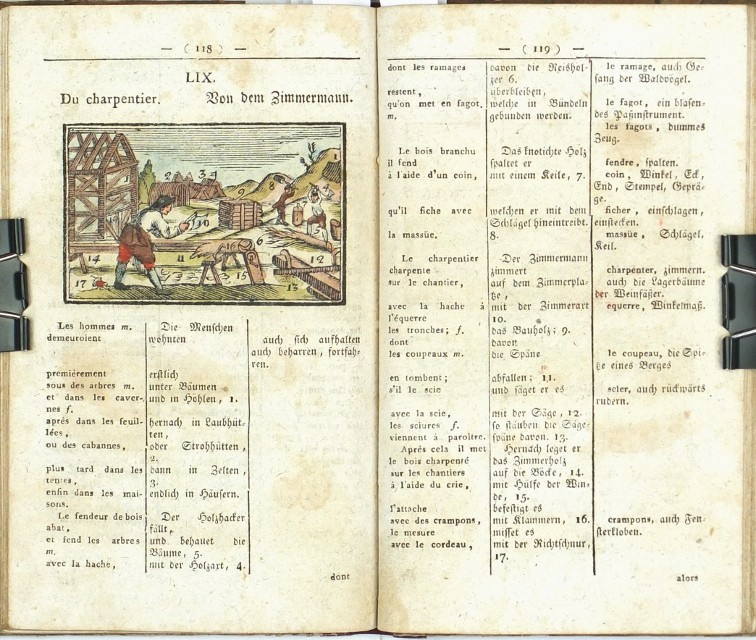 — ( 118 ) —
LIX.
Du charpentier. Von dem Zimmermann.
Les hommes m. Die Menschen
demeuroient wohnten auch sich aufhalten
auch beharren, fortfah-
ren.
premiérement erstlich
sous des arbres m. unter Bäumen
et dans les caver- und in Höhlen, 1.
nes f.
aprés dans les feuil- hernach in Laubhüt-
lées, ten,
ou des cabannes, oder Strohhütten,
2.
plus tard dans les dann in Zelten,
tentes, 3.
enfin dans les mai- endlich in Häusern.
sons.
Le fendeur de bois Der Holzhacker
abat, fällt,
et fend les arbres und behauet die
m. Bäume, 5.
avec la hache, mit der Holzaxt, 4.
dont
— ( 119 ) —
dont les ramages davon die Reishöl- le ramage, auch Ge-
zer 6. sang der Waldvögel.
restent, überbleiben,
qu'on met en fagot, welche in Bündeln le fagot, ein blasen-
m. gebunden werden. des Paßinstrument.
les fagots, dummes
Zeug.
Le bois branchu Das knotichte Holz
il fend spaltet er fendre, spalten.
à l'aide d'un coin, mit einem Keile, 7. coin, Winkel, Eck,
End, Stempel, Geprä-
ge.
qu'il fiche avec welchen er mit dem ficher, einschlagen,
Schlägel hineintreibt. einstecken.
la massüe. 8. massüe, Schlägel,
Keil.
Le charpentier Der Zimmermann
charpente zimmert charpenter, zimmern.
sur le chantier, auf dem Zimmerpla- auch die Lagerbäume
tze, der Weinfässer.
avec la hache à mit der Zimmeraxt equerre, Winkelmaß.
l'équerre 10.
les tronches; f. das Bauholz; 9.
dont davon
les coupeaux m. die Späne le coupeau, die Spi-
tze eines Berges
en tombent; abfallen; 11.
s'il le scie und säget er es scier, auch rückwärts
rudern.
avec la scie, mit der Säge, 12.
les sciures f. so stäuben die Säge-
viennent à paroître. späne davon. 13.
Aprés cela il met Hernach leget er
le bois charpenté das Zimmerholz
sur les chantiers auf die Böcke, 14.
à l'aide du cric, mit Hülfe der Win-
de, 15.
l'attache befestigt es
avec des crampons, mit Klammern, 16. crampons, auch Fen-
le mesure misset es sterkloben.
avec le cordeau, mit der Richtschnur,
17.
alors